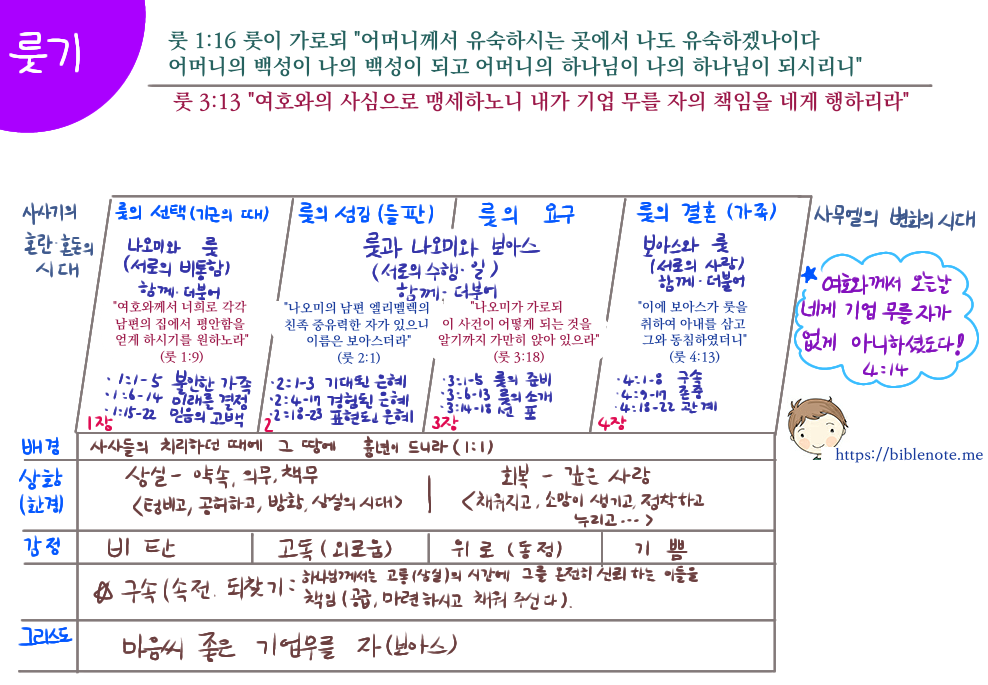 룻기
룻 1:16 룻이 가로되 "어머니께서 유숙하시는 곳에서 나도 유숙하겠나이다
어머니의 백성이 나의 백성이 되고 어머니의 하나님이 나의 하나님이 되시리니"
룻 3:13 "여호와의 사심으로 맹세하노니 내가 기업 무를 자의 책임을 네게 행하리라"
사사기의
혼란·혼돈의
시대
룻의 선택 (기근의 때)
나오미와 룻
(서로의 비통함)
함께·더불어
"여호와께서 너희로 각각
남편의 집에서 평안함을
얻게 하시기를 원하노라"
(룻 1:9)
·1:1-5 불안한 가족
·1:6-14 미래를 결정
·1:15-22 믿음의 고백
1장
룻의 섬김 (들판)
룻의 요구
룻과 나오미와 보아스
(서로의 수행·일)
함께·더불어
"나오미의 남편 엘리멜렉의
친족 중유력한 자가 있으니
이름은 보아스더라"
(룻 2:1)
·2:1-3 기대된 은혜
·2:4-17 경험된 은혜
·2:18-23 표현된 은혜
2
"나오미가 가로되
이 사건이 어떻게 되는 것을
알기까지 가만히 앉아 있으라"
(룻 3:18)
·3:1-5 룻의 준비
·3:6-13 룻의 소개
·3:14-18 선 포
3장
룻의 결혼 (가족)
보아스와 룻
(서로의 사랑)
함께·더불어
"이에 보아스가 룻을
취하여 아내를 삼고
그와 동침하였더니"
(룻 4:13)
·4:1-8 구속
·4:9-17 존중
·4:18-22 관계
4장
사무엘의 변화의 시대
여호와께서 오늘날
네게 기업 무를 자가
없게 아니하셨도다!
4:14
https://biblenote.me
배경
사사들의 치리하던 때에 그 땅에 흉년이 드니라 (1:1)
상황
(한계)
상실 - 약속, 의무, 책무
<텅비고, 공허하고, 방황, 상실의 시대>
회복 - 깊은 사랑
<채워지고, 소망이 생기고, 정착하고
누리고...>
감정
비 탄
고독 (외로움)
위 로 (동정)
기 쁨
구속 (속전. 되찾기:
하나님께서는 고통(상실)의 시간에 그를 온전히 신뢰하는 이들을
책임 (공급, 마련하시고 채워 주신다).
그리스도
마음씨 좋은 기업무를 자 (보아스)